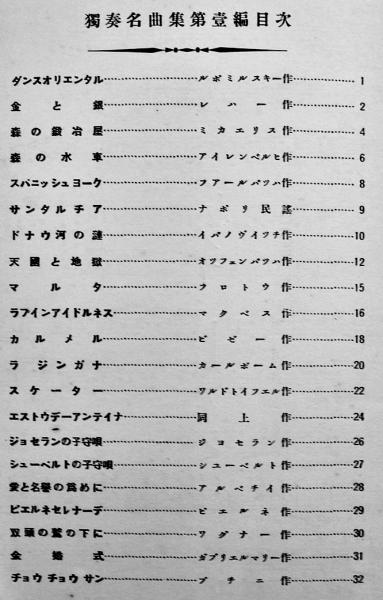 獨奏名曲集第壹編目次
ダンスオリエンタル……………ルボミルスキー作……………1
金と銀……………レハー作……………2
森の鍛冶屋……………ミカエリス作……………4
森の水車……………アイレンベルヒ作……………6
スパニッシュヨーク……………フアールバツハ作……………8
サンタルチア……………ナポリ民謠……………9
ドナウ河の漣……………イバノヴイツチ作……………10
天國と地獄……………オツフェンバツハ作……………12
マルタ……………フロトウ作……………15
ラフインアイドルネス……………マクベス作……………16
カルメル……………ビゼー作……………18
ラジンガナ……………カールボーム作……………20
スケーター……………ワルドトイフエル作……………22
エストウデーアンテイナ……………同上作……………24
ジョセランの子守唄……………ジヨセラン作……………26
シューベルトの子守唄……………シユーベルト作……………27
愛と名譽の爲めに……………アルベチイ作……………28
ピエルネセレナーデ……………ピエルネ作……………29
双頭の鷲の下に……………ワグナー作……………30
金婚式……………ガブリエルマリー作……………31
チョウチョウサン……………プチニ作……………32